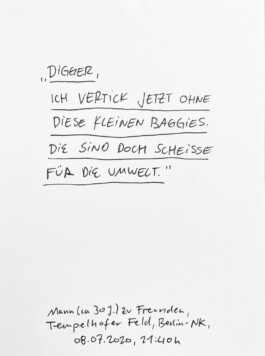 „DIGGER,
ICH VERTICK JETZT OHNE
DIESE KLEINEN BAGGIES.
DIE SIND DOCH SCHEISSE
FÜR DIE UMWELT."
Mann (ca 30 J.) zu Freunden,
Tempelhofer Feld, Berlin-NK,
08.07.2020, 21:40h